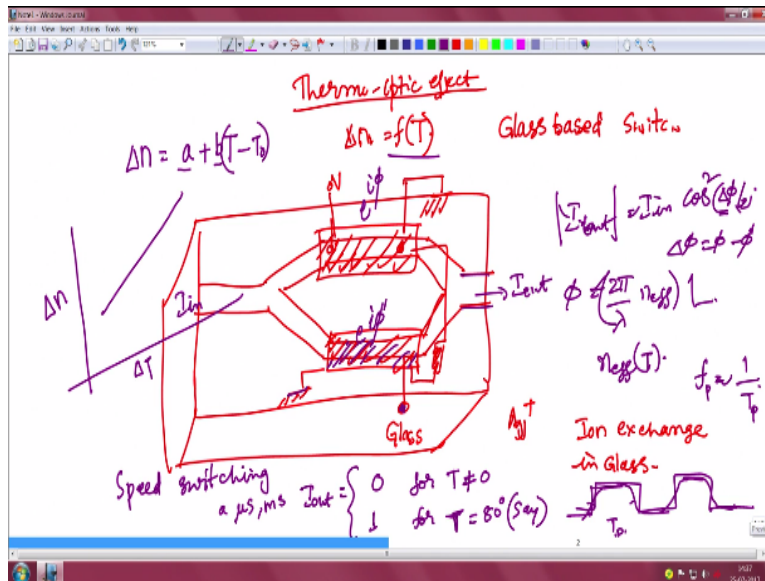 Note1 - Windows Journal
File Edit View Insert Actions Tools Help
Thermo-optic effect
Δn = f(T)
Glass based Switch
Δn = a + b(T-T0)
0V
e^iφ
|Iout| = Iin cos²(Δφ/2)
Δφ = φ - φ'
Δn
Iin
→ Iout
φ = (2π/λ neff) L
e^iφ'
ΔT
neff(T).
fp ≈ 1/Tp
Glass
Ag+
Ion exchange
in Glass
Speed switching
a μs, ms
Iout = { 0 for T ≠ 0
1 for T = 80° (Say)
Tp
2
14:37